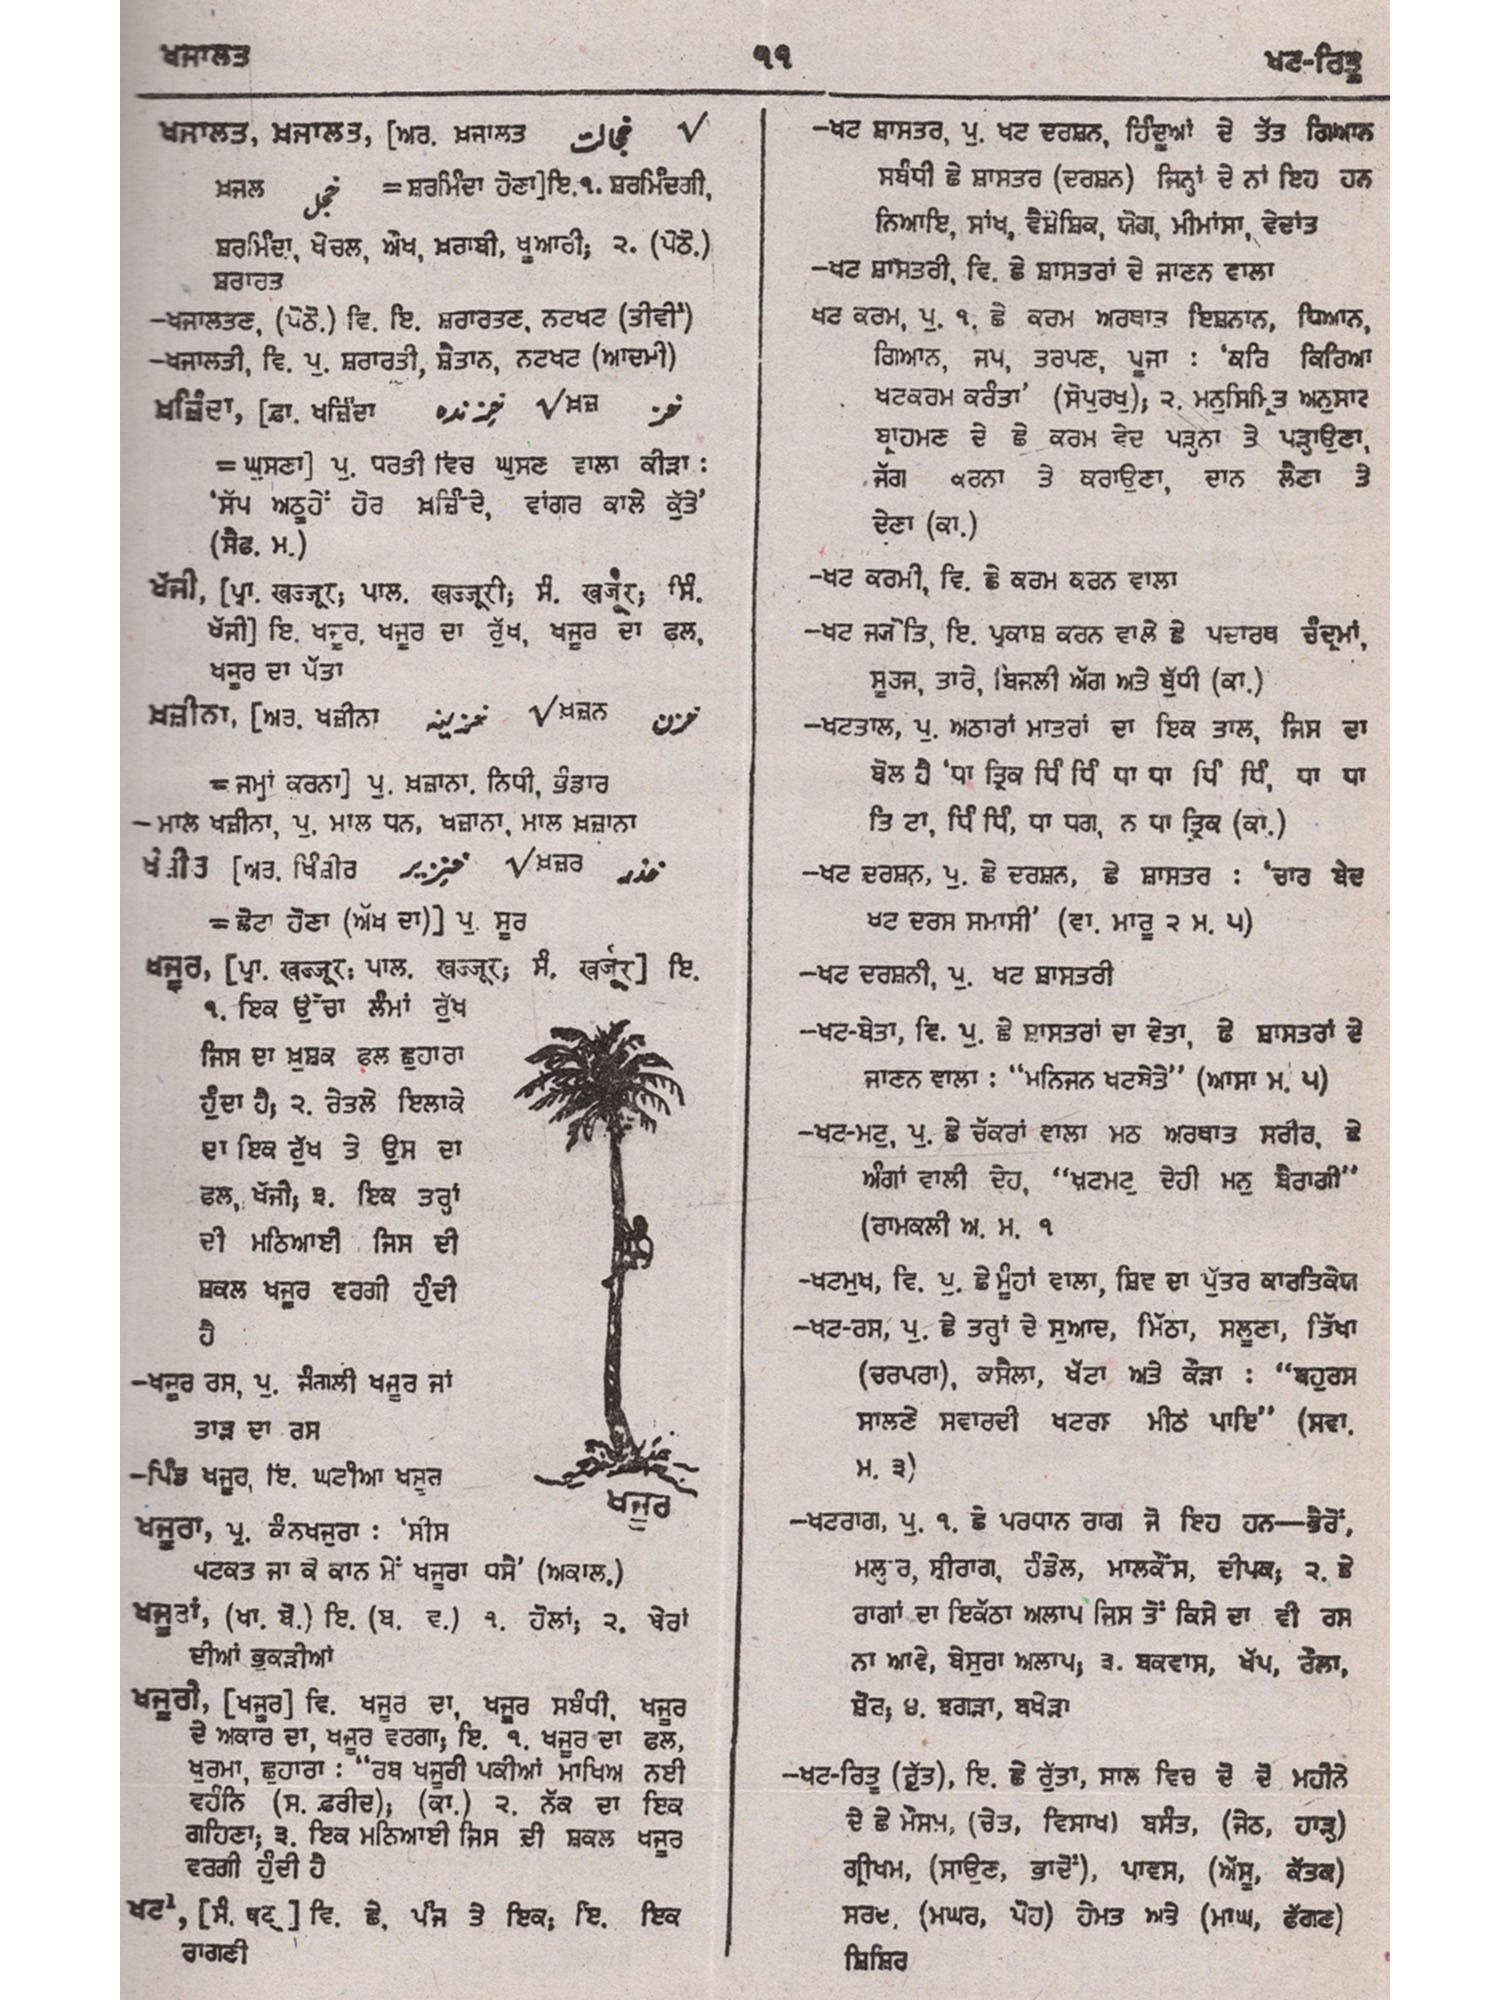 ਖਜਾਲਤ
੧੧
ਖਟ-ਰਿਤੂ
ਖਜਾਲਤ, ਖ਼ਜਾਲਤ, [ਅਰ. ਖ਼ਜਾਲਤ خجالت √
ਖ਼ਜਲ خجل =ਸ਼ਰਮਿੰਦਾ ਹੋਣਾ]ਇ.੧. ਸ਼ਰਮਿੰਦਗੀ,
ਸ਼ਰਮਿੰਦਾ, ਖੇਚਲ, ਔਖ, ਖ਼ਰਾਬੀ, ਖੂਆਰੀ; ੨. (ਪੋਠੋ.)
ਸ਼ਰਾਰਤ
–ਖਜਾਲਤਣ, (ਪੋਠੋ.) ਵਿ. ਇ. ਸ਼ਰਾਰਤਣ, ਨਟਖਟ (ਤੀਵੀਂ)
–ਖਜਾਲਤੀ, ਵਿ. ਪੁ. ਸ਼ਰਾਰਤੀ, ਸ਼ੈਤਾਨ, ਨਟਖਟ (ਆਦਮੀ)
ਖ਼ਜ਼ਿੰਦਾ, [ਫ਼ਾ. ਖਜ਼ਿੰਦਾ خزندہ √ਖ਼ਜ਼ خز
=ਘੁਸਣਾ] ਪੁ. ਧਰਤੀ ਵਿਚ ਘੁਸਣ ਵਾਲਾ ਕੀੜਾ :
'ਸੱਪ ਅਠੂਹੇਂ ਹੋਰ ਖ਼ਜ਼ਿੰਦੇ, ਵਾਂਗਰ ਕਾਲੇ ਕੁੱਤੇ'
(ਸੈਫ. ਮ.)
ਖੱਜੀ, [ਪ੍ਰਾ. खज्जूर; ਪਾਲ. खज्जूरी; ਸੰ. खर्जूर; ਸਿੰ.
ਖੱਜੀ] ਇ. ਖਜੂਰ, ਖਜੂਰ ਦਾ ਰੁੱਖ, ਖਜੂਰ ਦਾ ਫਲ,
ਖਜੂਰ ਦਾ ਪੱਤਾ
ਖ਼ਜ਼ੀਨਾ, [ਅਰ. ਖਜ਼ੀਨਾ خزینہ √ਖ਼ਜ਼ਨ خزن
=ਜਮ੍ਹਾਂ ਕਰਨਾ] ਪੁ. ਖ਼ਜ਼ਾਨਾ, ਨਿਧੀ, ਭੰਡਾਰ
–ਮਾਲ ਖਜ਼ੀਨਾ, ਪੁ. ਮਾਲ ਧਨ, ਖਜ਼ਾਨਾ, ਮਾਲ ਖ਼ਜ਼ਾਨਾ
[ਅਰ. ਖਿੰਜ਼ੀਰ خنزیر √ਖ਼ਜ਼ਰ
=ਛੋਟਾ ਹੋਣਾ (ਅੱਖ ਦਾ)] ਪੁ. ਸੂਰ
ਖਜੂਰ, [ਪ੍ਰਾ. खज्जूर; ਪਾਲ. खज्जूर; ਸੰ. खर्जूर] ਇ.
੧. ਇਕ ਉੱਚਾ ਲੰਮਾਂ ਰੁੱਖ
ਜਿਸ ਦਾ ਖ਼ੁਸ਼ਕ ਫਲ ਛੁਹਾਰਾ
ਹੁੰਦਾ ਹੈ; ੨. ਰੇਤਲੇ ਇਲਾਕੇ
ਦਾ ਇਕ ਰੁੱਖ ਤੇ ਉਸ ਦਾ
ਫਲ, ਖੱਜੀ; ੩. ਇਕ ਤਰ੍ਹਾਂ
ਦੀ ਮਠਿਆਈ ਜਿਸ ਦੀ
ਸ਼ਕਲ ਖਜੂਰ ਵਰਗੀ ਹੁੰਦੀ
ਹੈ
ਖਜੂਰ
–ਖਜੂਰ ਰਸ, ਪੁ. ਜੰਗਲੀ ਖਜੂਰ ਜਾਂ
ਤਾੜ ਦਾ ਰਸ
–ਪਿੰਡ ਖਜੂਰ, ਇ. ਘਟੀਆ ਖਜੂਰ
ਖਜੂਰਾ, ਪੁ. ਕੰਨਖਜੂਰਾ : 'ਸੀਸ
ਪਟਕਤ ਜਾ ਕੇ ਕਾਨ ਮੇਂ ਖਜੂਰਾ ਧਸੈ' (ਅਕਾਲ.)
ਖਜੂਤਾਂ, (ਖਾ. ਬੋ.) ਇ. (ਬ. ਵ.) ੧. ਹੋਲਾਂ; ੨. ਬੇਰਾਂ
ਦੀਆਂ ਭੁਕੜੀਆਂ
ਖਜੂਰੀ, [ਖਜੂਰ] ਵਿ. ਖਜੂਰ ਦਾ, ਖਜੂਰ ਸਬੰਧੀ, ਖਜੂਰ
ਦੇ ਅਕਾਰ ਦਾ, ਖਜੂਰ ਵਰਗਾ; ਇ. ੧. ਖਜੂਰ ਦਾ ਫਲ,
ਖੁਰਮਾ, ਛੁਹਾਰਾ : "ਰਬ ਖਜੂਰੀ ਪਕੀਆਂ ਮਾਖਿਅ ਨਈ
ਵਹੰਨਿ (ਸ. ਫ਼ਰੀਦ); (ਕਾ.) ੨. ਨੱਕ ਦਾ ਇਕ
ਗਹਿਣਾ; ੩. ਇਕ ਮਠਿਆਈ ਜਿਸ ਦੀ ਸ਼ਕਲ ਖਜੂਰ
ਵਰਗੀ ਹੁੰਦੀ ਹੈ
ਖਟ¹, [ਸੰ. षट्] ਵਿ. ਛੇ, ਪੰਜ ਤੇ ਇਕ; ਇ. ਇਕ
ਰਾਗਣੀ
–ਖਟ ਸ਼ਾਸਤਰ, ਪੁ. ਖਟ ਦਰਸ਼ਨ, ਹਿੰਦੂਆਂ ਦੇ ਤੱਤ ਗਿਆਨ
ਸਬੰਧੀ ਛੇ ਸ਼ਾਸਤਰ (ਦਰਸ਼ਨ) ਜਿਨ੍ਹਾਂ ਦੇ ਨਾਂ ਇਹ ਹਨ
ਨਿਆਇ, ਸਾਂਖ, ਵੈਸ਼ੇਸ਼ਿਕ, ਯੋਗ, ਮੀਮਾਂਸਾ, ਵੇਦਾਂਤ
–ਖਟ ਸ਼ਾਸਤਰੀ, ਵਿ. ਛੇ ਸ਼ਾਸਤਰਾਂ ਦੇ ਜਾਣਨ ਵਾਲਾ
ਖਟ ਕਰਮ, ਪੁ. ੧. ਛੇ ਕਰਮ ਅਰਥਾਤ ਇਸ਼ਨਾਨ, ਧਿਆਨ,
ਗਿਆਨ, ਜਪ, ਤਰਪਣ, ਪੂਜਾ : 'ਕਰਿ ਕਿਰਿਆ
ਖਟਕਰਮ ਕਰੰਤਾ' (ਸੋਪੁਰਖੁ); ੨. ਮਨੁਸਿਮ੍ਰਿਤ ਅਨੁਸਾਰ
ਬ੍ਰਾਹਮਣ ਦੇ ਛੇ ਕਰਮ ਵੇਦ ਪੜ੍ਹਨਾ ਤੇ ਪੜ੍ਹਾਉਣਾ,
ਜੱਗ ਕਰਨਾ ਤੇ ਕਰਾਉਣਾ, ਦਾਨ ਲੈਣਾ ਤੇ
ਦੇਣਾ (ਕਾ.)
–ਖਟ ਕਰਮੀ, ਵਿ. ਛੇ ਕਰਮ ਕਰਨ ਵਾਲਾ
–ਖਟ ਜਯੋਤਿ, ਇ. ਪ੍ਰਕਾਸ਼ ਕਰਨ ਵਾਲੇ ਛੇ ਪਦਾਰਥ ਚੰਦ੍ਰਮਾਂ,
ਸੂਰਜ, ਤਾਰੇ, ਬਿਜਲੀ ਅੱਗ ਅਤੇ ਬੁੱਧੀ (ਕਾ.)
–ਖਟਤਾਲ, ਪੁ. ਅਠਾਰਾਂ ਮਾਤਰਾਂ ਦਾ ਇਕ ਤਾਲ, ਜਿਸ ਦਾ
ਬੋਲ ਹੈ 'ਧਾ ਤ੍ਰਿਕ ਧਿੰ ਧਿੰ ਧਾ ਧਾ ਧਿੰ ਧਿੰ, ਧਾ ਧਾ
ਤਿ ਟਾ, ਧਿੰ ਧਿੰ, ਧਾ ਧਗ, ਨ ਧਾ ਤ੍ਰਿਕ (ਕਾ.)
–ਖਟ ਦਰਸ਼ਨ, ਪੁ. ਛੇ ਦਰਸ਼ਨ, ਛੇ ਸ਼ਾਸਤਰ : 'ਚਾਰ ਬੇਦ
ਖਟ ਦਰਸ ਸਮਾਸੀ' (ਵਾ. ਮਾਰੂ ੨ ਮ. ੫)
–ਖਟ ਦਰਸ਼ਨੀ, ਪੁ. ਖਟ ਸ਼ਾਸਤਰੀ
–ਖਟ-ਬੇਤਾ, ਵਿ. ਪੁ. ਛੇ ਸ਼ਾਸਤਰਾਂ ਦਾ ਵੇਤਾ, ਛੇ ਸ਼ਾਸਤਰਾਂ ਦੇ
ਜਾਣਨ ਵਾਲਾ : "ਮਨਿਜਨ ਖਟਬੇਤੇ" (ਆਸਾ ਮ. ੫)
–ਖਟ-ਮਟੁ, ਪੁ. ਛੇ ਚੱਕਰਾਂ ਵਾਲਾ ਮਠ ਅਰਥਾਤ ਸਰੀਰ, ਛੇ
ਅੰਗਾਂ ਵਾਲੀ ਦੇਹ, "ਖਟਮਟੁ ਦੇਹੀ ਮਨੁ ਬੈਰਾਗੀ"
(ਰਾਮਕਲੀ ਅ. ਮ. ੧
–ਖਟਮੁਖ, ਵਿ. ਪੁ. ਛੇ ਮੂੰਹਾਂ ਵਾਲਾ, ਸ਼ਿਵ ਦਾ ਪੁੱਤਰ ਕਾਰਤਿਕੇਯ
–ਖਟ-ਰਸ, ਪੁ. ਛੇ ਤਰ੍ਹਾਂ ਦੇ ਸੁਆਦ, ਮਿੱਠਾ, ਸਲੂਣਾ, ਤਿੱਖਾ
(ਚਰਪਰਾ), ਕਸੈਲਾ, ਖੱਟਾ ਅਤੇ ਕੌੜਾ : "ਬਹੁਰਸ
ਸਾਲਣੇ ਸਵਾਰਦੀ ਖਟਰਸ ਮੀਠੇ ਪਾਇ" (ਸਵਾ.
ਮ. ੩)
–ਖਟਰਾਗ, ਪੁ. ੧. ਛੇ ਪਰਧਾਨ ਰਾਗ ਜੋ ਇਹ ਹਨ—ਭੈਰੋਂ,
ਮਲ੍ਹਾਰ, ਸ੍ਰੀਰਾਗ, ਹੰਡੋਲ, ਮਾਲਕੌਂਸ, ਦੀਪਕ; ੨. ਛੇ
ਰਾਗਾਂ ਦਾ ਇਕੱਠਾ ਅਲਾਪ ਜਿਸ ਤੋਂ ਕਿਸੇ ਦਾ ਵੀ ਰਸ
ਨਾ ਆਵੇ, ਬੇਸੁਰਾ ਅਲਾਪ; ੩. ਬਕਵਾਸ, ਖੱਪ, ਰੌਲਾ,
ਸ਼ੋਰ; ੪. ਝਗੜਾ, ਬਖੇੜਾ
–ਖਟ-ਰਿਤੂ (ਰੁੱਤ), ਇ. ਛੇ ਰੁੱਤਾ, ਸਾਲ ਵਿਚ ਦੋ ਦੋ ਮਹੀਨੇ
ਦੇ ਛੇ ਮੌਸਮ, (ਚੇਤ, ਵਿਸਾਖ) ਬਸੰਤ, (ਜੇਠ, ਹਾੜ੍ਹ)
ਗ੍ਰੀਖਮ, (ਸਾਉਣ, ਭਾਦੋਂ), ਪਾਵਸ, (ਅੱਸੂ, ਕੱਤਕ)
ਸਰਦ, (ਮਘਰ, ਪੋਹ) ਹੇਮਤ ਅਤੇ (ਮਾਘ, ਫੱਗਣ)
ਸ਼ਿਸ਼ਿਰ